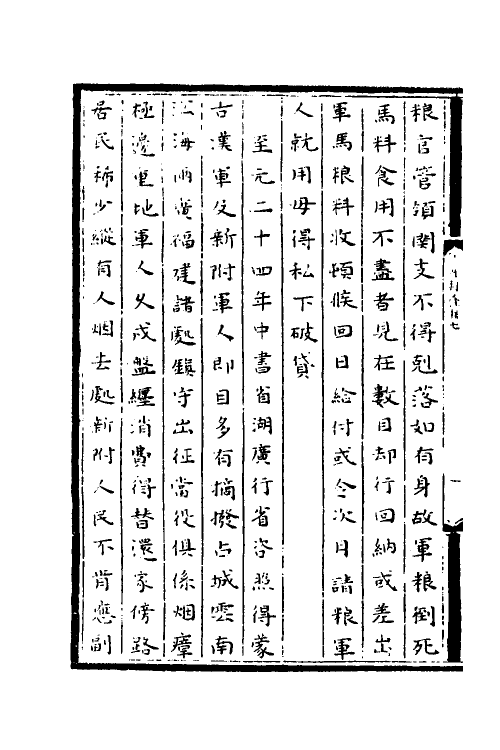 粮官管領関支不得剋落如有身故軍粮倒死
馬料食用不盡者見在數目却行回納或差出
軍馬粮料收頓候回日給付或令次日請粮軍
人就用毋得私下破貸
至元二十四年中書省湖廣行省咨照得蒙
古漢軍及新附軍人即目多有摘撥占城雲南
江海兩廣福建諸處鎮守出征當役俱係烟瘴
極邊重地軍人久戍盤纏消費得替還家傍路
居民稀少縱有人烟去處新附人民不肯應副